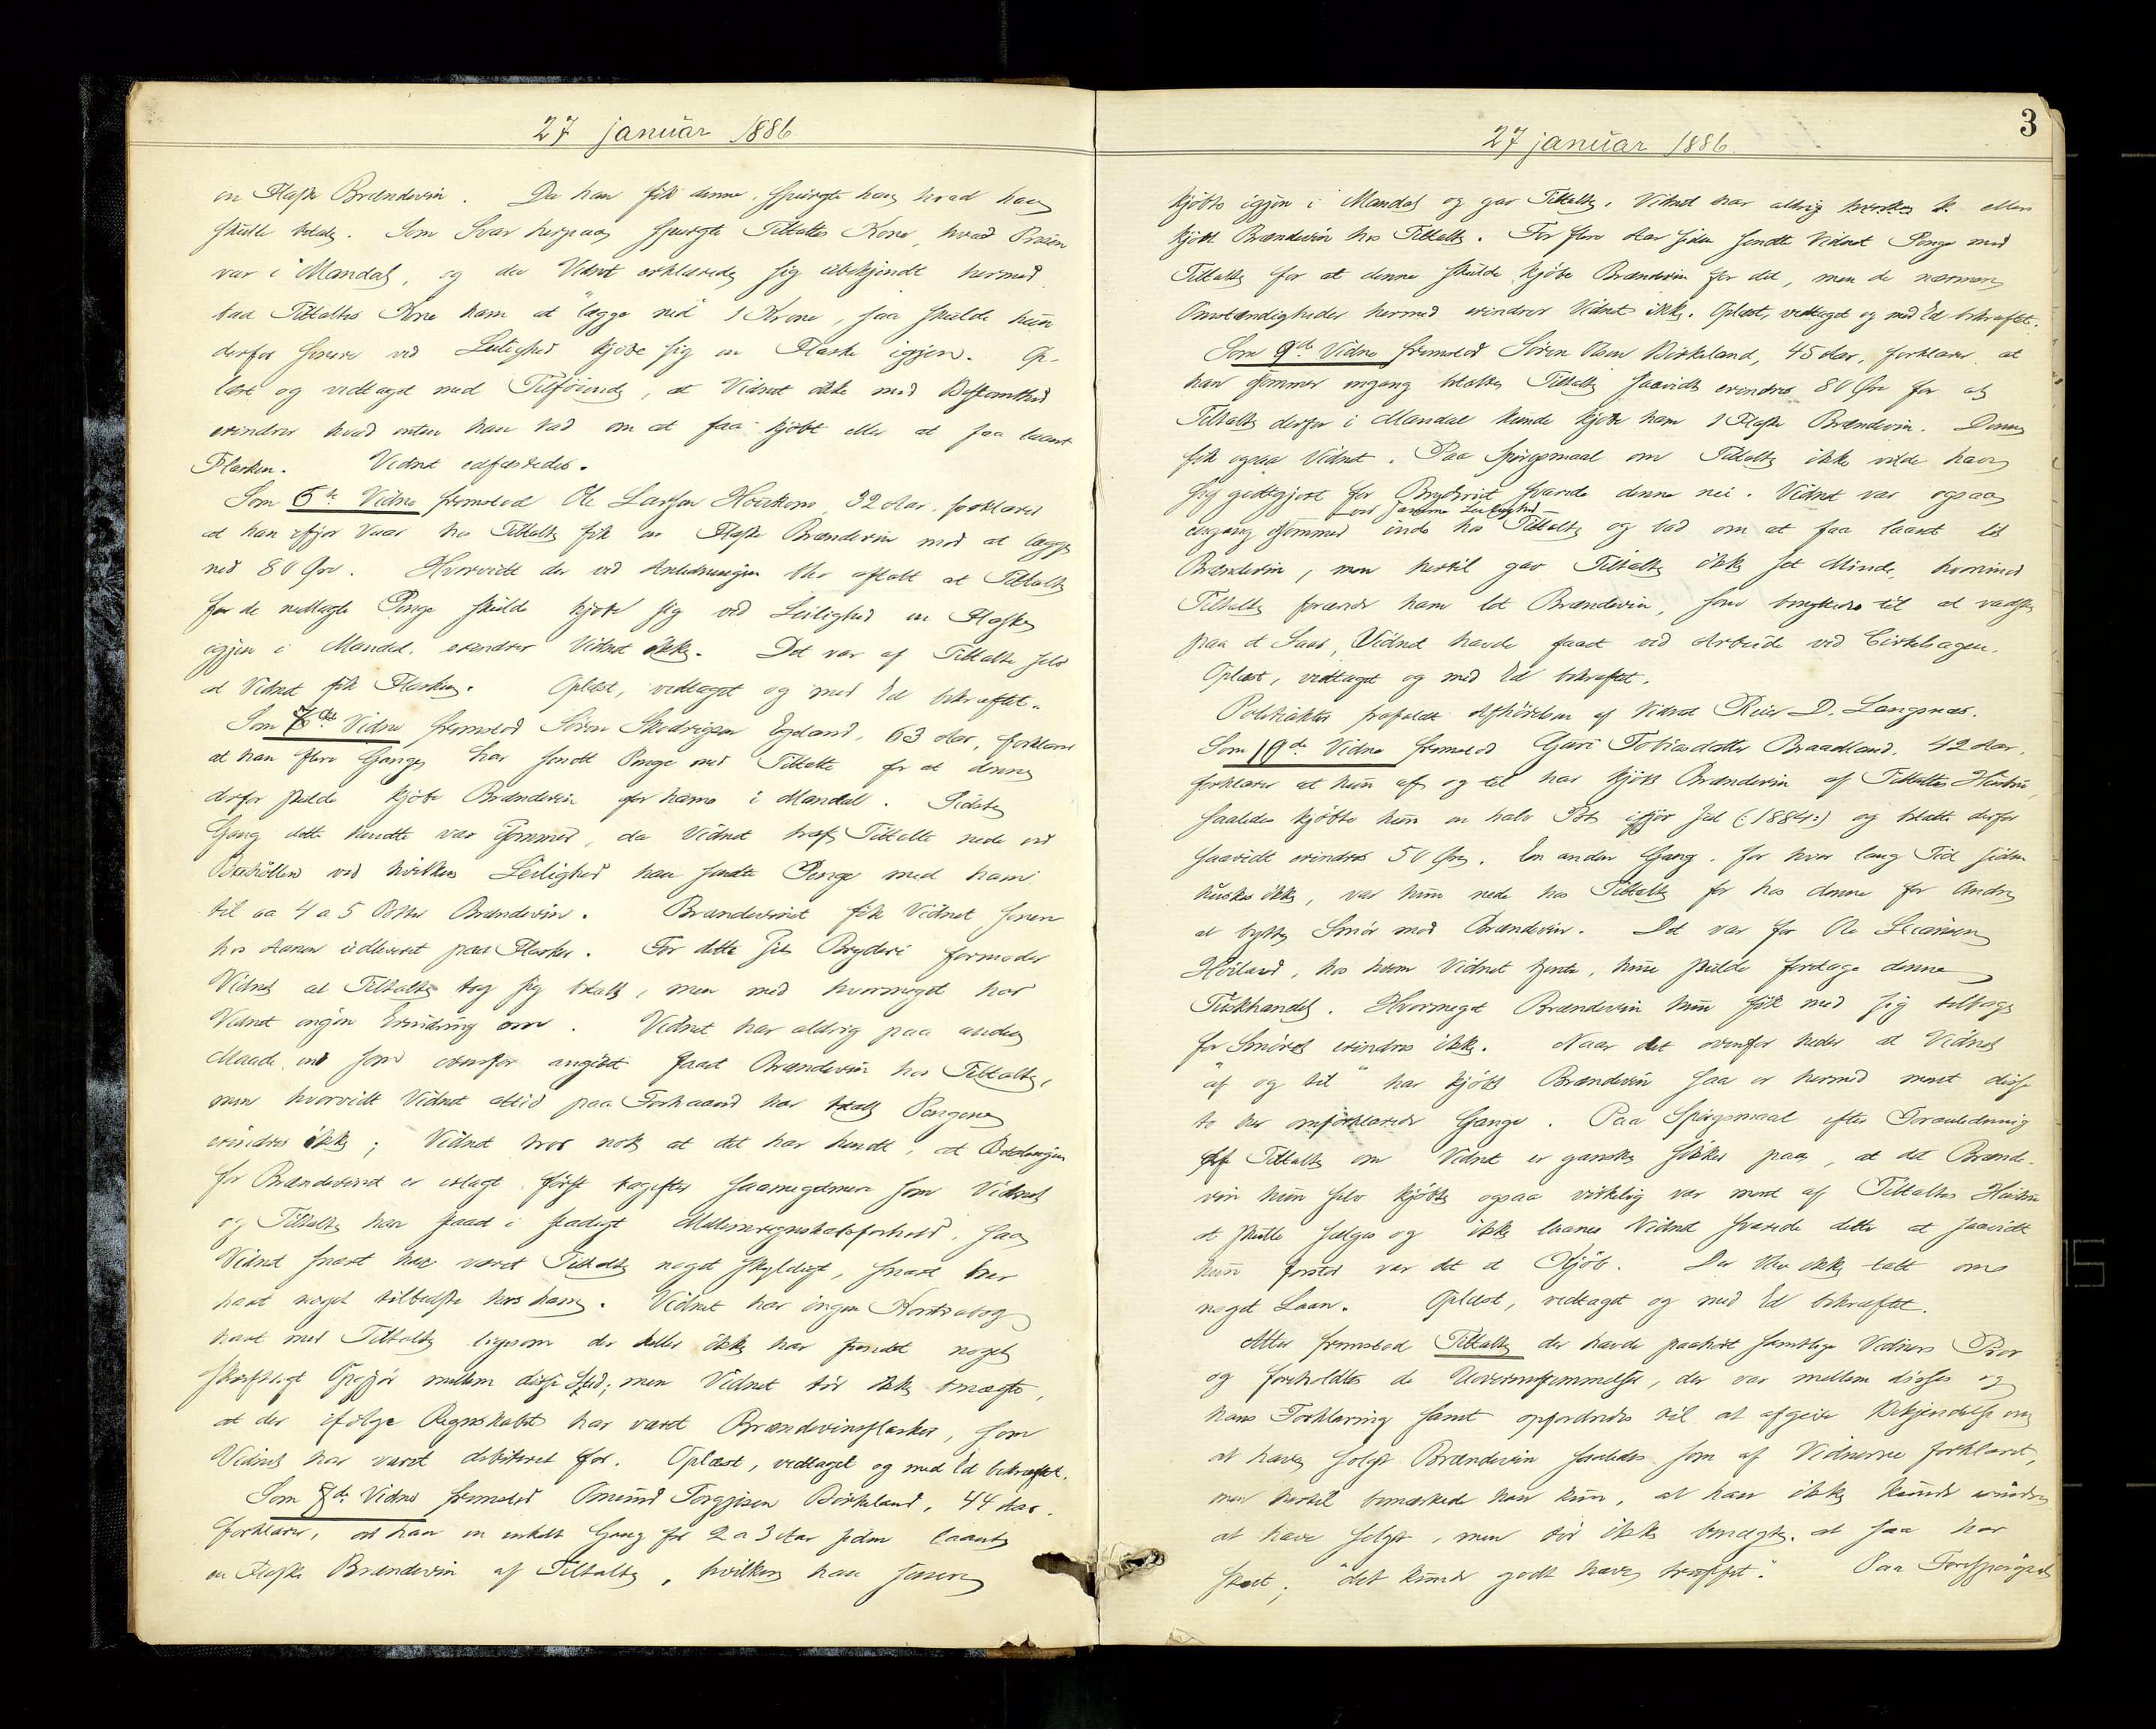 27 januar 1886
en Flaske Brændevin. Da han fik denne, spurgte han hvad han
skulle betale. Som Svar herpaa spurgte Tiltaltes Kone, hvad Prisen
var i Mandal, og da Vidnet erklærede sig ubekjendt hermed,
bad Tiltaltes Kone ham at "lægge ned" 1 Krone, saa skulde hun
derfor senere ved Leilighed kjøbe sig en Flaske igjen. Op-
læst og vedtaget med Tilføiende, at Vidnet ikke med Bestemthed
erindrer hvad enten han bad om at faa kjøbt eller at faa laant
Flasken. Vidnet edfæstedes.
Som 6te Vidne fremstod Ole Larsen 32 Aar, forklared
at han ifjor Vaar hos Tiltalte fik en Flaske Brændevin mod at lægge
ned 80 Øre. Hvorvidt der ved Anledningen blev aftalt at Tiltalte
for de nedlagte Penge skulde kjøbe sig ved Leilighed en Flaske
igjen i Mandal, erindrer Vidnet ikke. Det var af Tiltalte selv
at Vidnet fik Flasken. Oplæst, vedtaget og med Ed bekræftet.
Som 7de Vidne fremstod Søren Egeland, 63 Aar, forklarer
at han flere Gange har sendt Penge med Tiltalte for at denne
derfor skulde kjøbe Brændevin for ham i Mandal. Sidste
Gang dette hendte var isommer, da Vidnet traf Tiltalte nede ved
ved hvilken Leilighed han sendte Penge med ham
til aa 4 a 5 Potter Brændevin. Brændevinet fik Vidnet senere
hos udleveret paa Flasker. For dette sit Bryderi formoder
Vidnet at Tiltalte tog sig betalt, men med hvormeget har
Vidnet ingen Erindring om. Vidnet har aldrig paa anden
Maade end som ovenfor angivet faaet Brændevin hos Tiltalte,
men hvorvidt Vidnet altid paa Forhaand har betalt Pengene
erindres ikke; Vidnet tror nok at det har hendt, at Betalingen
for Brændevinet er erlagt først bagefter saameget mere som Vidnet
og Tiltalte har staaet i stadigt Mellemregnskabsforhold, saa
Vidnet snart har været Tiltalte noget skyldigt, snart har
havt noget tilbedste hos ham. Vidnet har ingen Kontrabog
havt med Tiltalte ligesom der heller ikke har fundet noget
skriftligt Opgjør mellem disse Sted; men Vidnet tør ikke benægte,
at der ifølge Regnskabet har været Brændevinsflasker, som
Vidnet har været debiteret for. Oplæst, vedtaget og med Ed bekræftet.
Som 8de Vidne fremstod Omund Torgjisen Birkeland, 44 Aar.
forklarer, at han en enkelt Gang for 2 a 3 Aar siden laante
en Flaske Brændevin af Tiltalte, hvilken han senere
27 januar 1886.
3
kjøbte igjen i Mandal og gav Tiltalte. Vidnet har aldrig eller
kjøbt Brændevin hos Tiltalte. For flere Aar siden sendte Vidnet Penge med
Tiltalte for at denne skulde kjøbe Brændevin for det, men de nærmere
Omstændigheder hermed erindrer Vidnet ikke. Oplæst, vedtaget og med Ed bekræftet.
Som 9de Vidne fremstod Søren Birkeland, 45 Aar, forklarer at
han isommer engang betalte Tiltalte saavidt erindres 80 Øre for at
Tiltalte derfor i Mandal kunde kjøbe ham 1 Flaske Brændevin. Denne
fik ogsaa Vidnet. Paa Spørgsmaal om Tiltalte ikke vilde have
sig godtgjort for Bryderiet svarede denne nei. Vidnet var ogsaa
ved samme Leilighed
engang isommer inde hos Tiltalte og bad om at faa laant lit
Brændevin, men hertil gav Tiltalte ikke sit Minde, hvorimod
Tiltalte forærede ham lit Brændevin, som benyttedes til at vadske
paa et Saar, Vidnet havde faaet ved Arbeide ved Cirkelsagen.
Oplæst, vedtaget og med Ed bekræftet.
Politiaktor frafaldt Afhørelsen af Vidnet Reier D. Langnæs.
Som 10de Vidne fremstod Guri Tobiasdatter Braadland, 42 Aar,
forklarer at hun af og til har kjøbt Brændevin af Tiltaltes Hustru,
saaledes kjøbte hun en halv Pot ifjor Jul (:1884:) og betalte derfor
saavidt erindres 50 Øre. En anden Gang, for hvor lang Tid siden
huskes ikke, var hun nede hos Tiltalte for hos denne for Andre
at bytte Smør mod Brændevin. Det var for Ole
Høiland, hos hvem Vidnet tjente, hun skulde foretage denne
Tuskhandel. Hvormeget Brændevin hun fik med sig tilbage
for Smøret erindres ikke. Naar det ovenfor heder at Vidnet
"af og til" har kjøbt Brændevin saa er hermed ment disse
to her omforklarede Gange. Paa Spørgsmaal efter Foranledning
af Tiltalte om Vidnet er ganske sikker paa, at det Brænde-
vin hun selv kjøbte ogsaa virkelig var ment af Tiltaltes Hustru
at skulle sælges og ikke laanes Vidnet svarede dette at saavidt
hun forstod var det et Kjøb. Der blev ikke talt om
noget Laan. Oplæst, vedtaget og med Ed bekræftet.
Atter fremstod Tiltalte der havde paahørt samtlige Vidners Prov
og foreholdtes de Uoverensstemmelser, der var mellem disses og
hans Forklaring samt opfordredes til at afgive Tilkjendelse om
at have solgt Brændevin saaledes som af Vidnerne forklaret,
men hertil bemærkede han kun, at han ikke kunde erindre
at have solgt, men tør ikke benægte, at saa har
skeet; "det kunde godt have truffet". Paa Forespørgsel